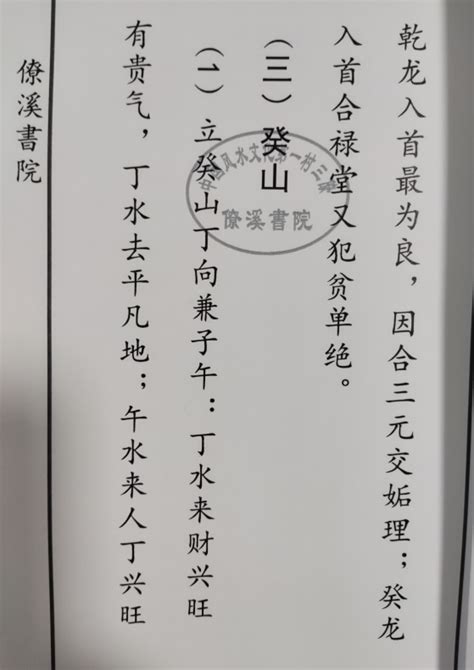 乾龙入首最为良，因合三元交姤理；癸龙
入首合禄堂又犯贫单绝。
（三）癸山
（一）立癸山丁向兼子午：丁水来财兴旺
有贵气，丁水去平凡地；午水来人丁兴旺
僚溪書院
中国风水文化第一村三僚
僚溪書院